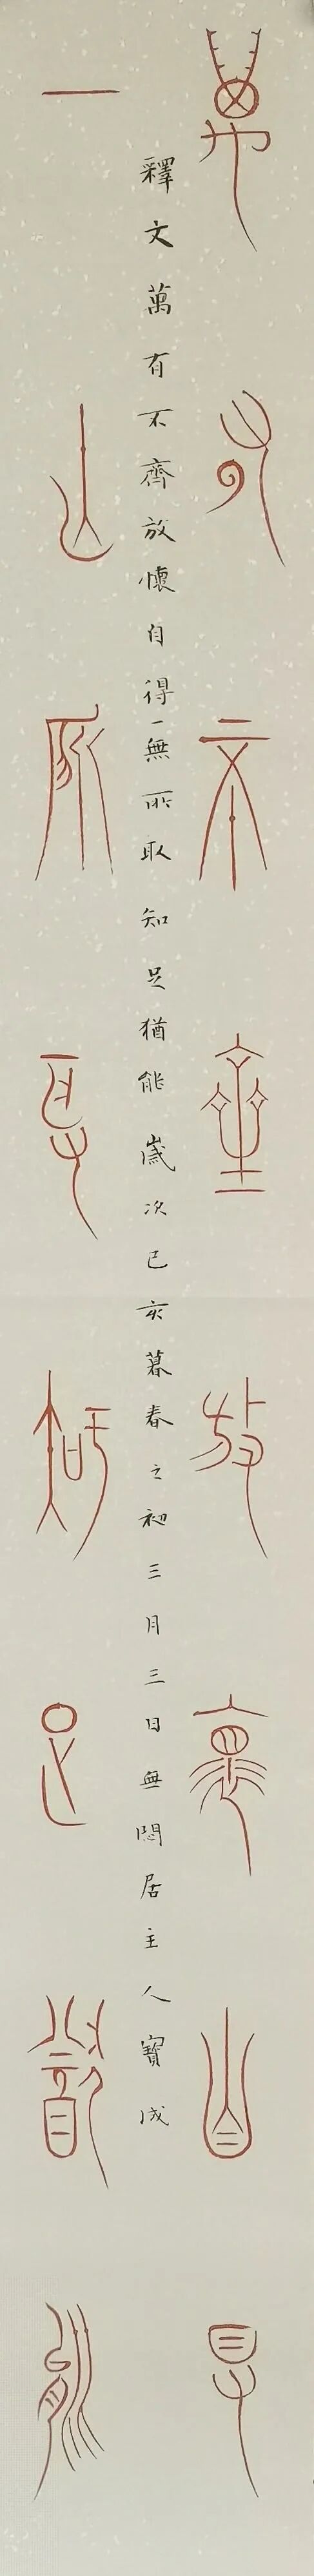 萬有不齊放懷自得
一無所取知足猶能
釋文萬有不齊放懷自得一無所取知足猶能歲次己亥暮春之初三月三日無悶居主人寶成